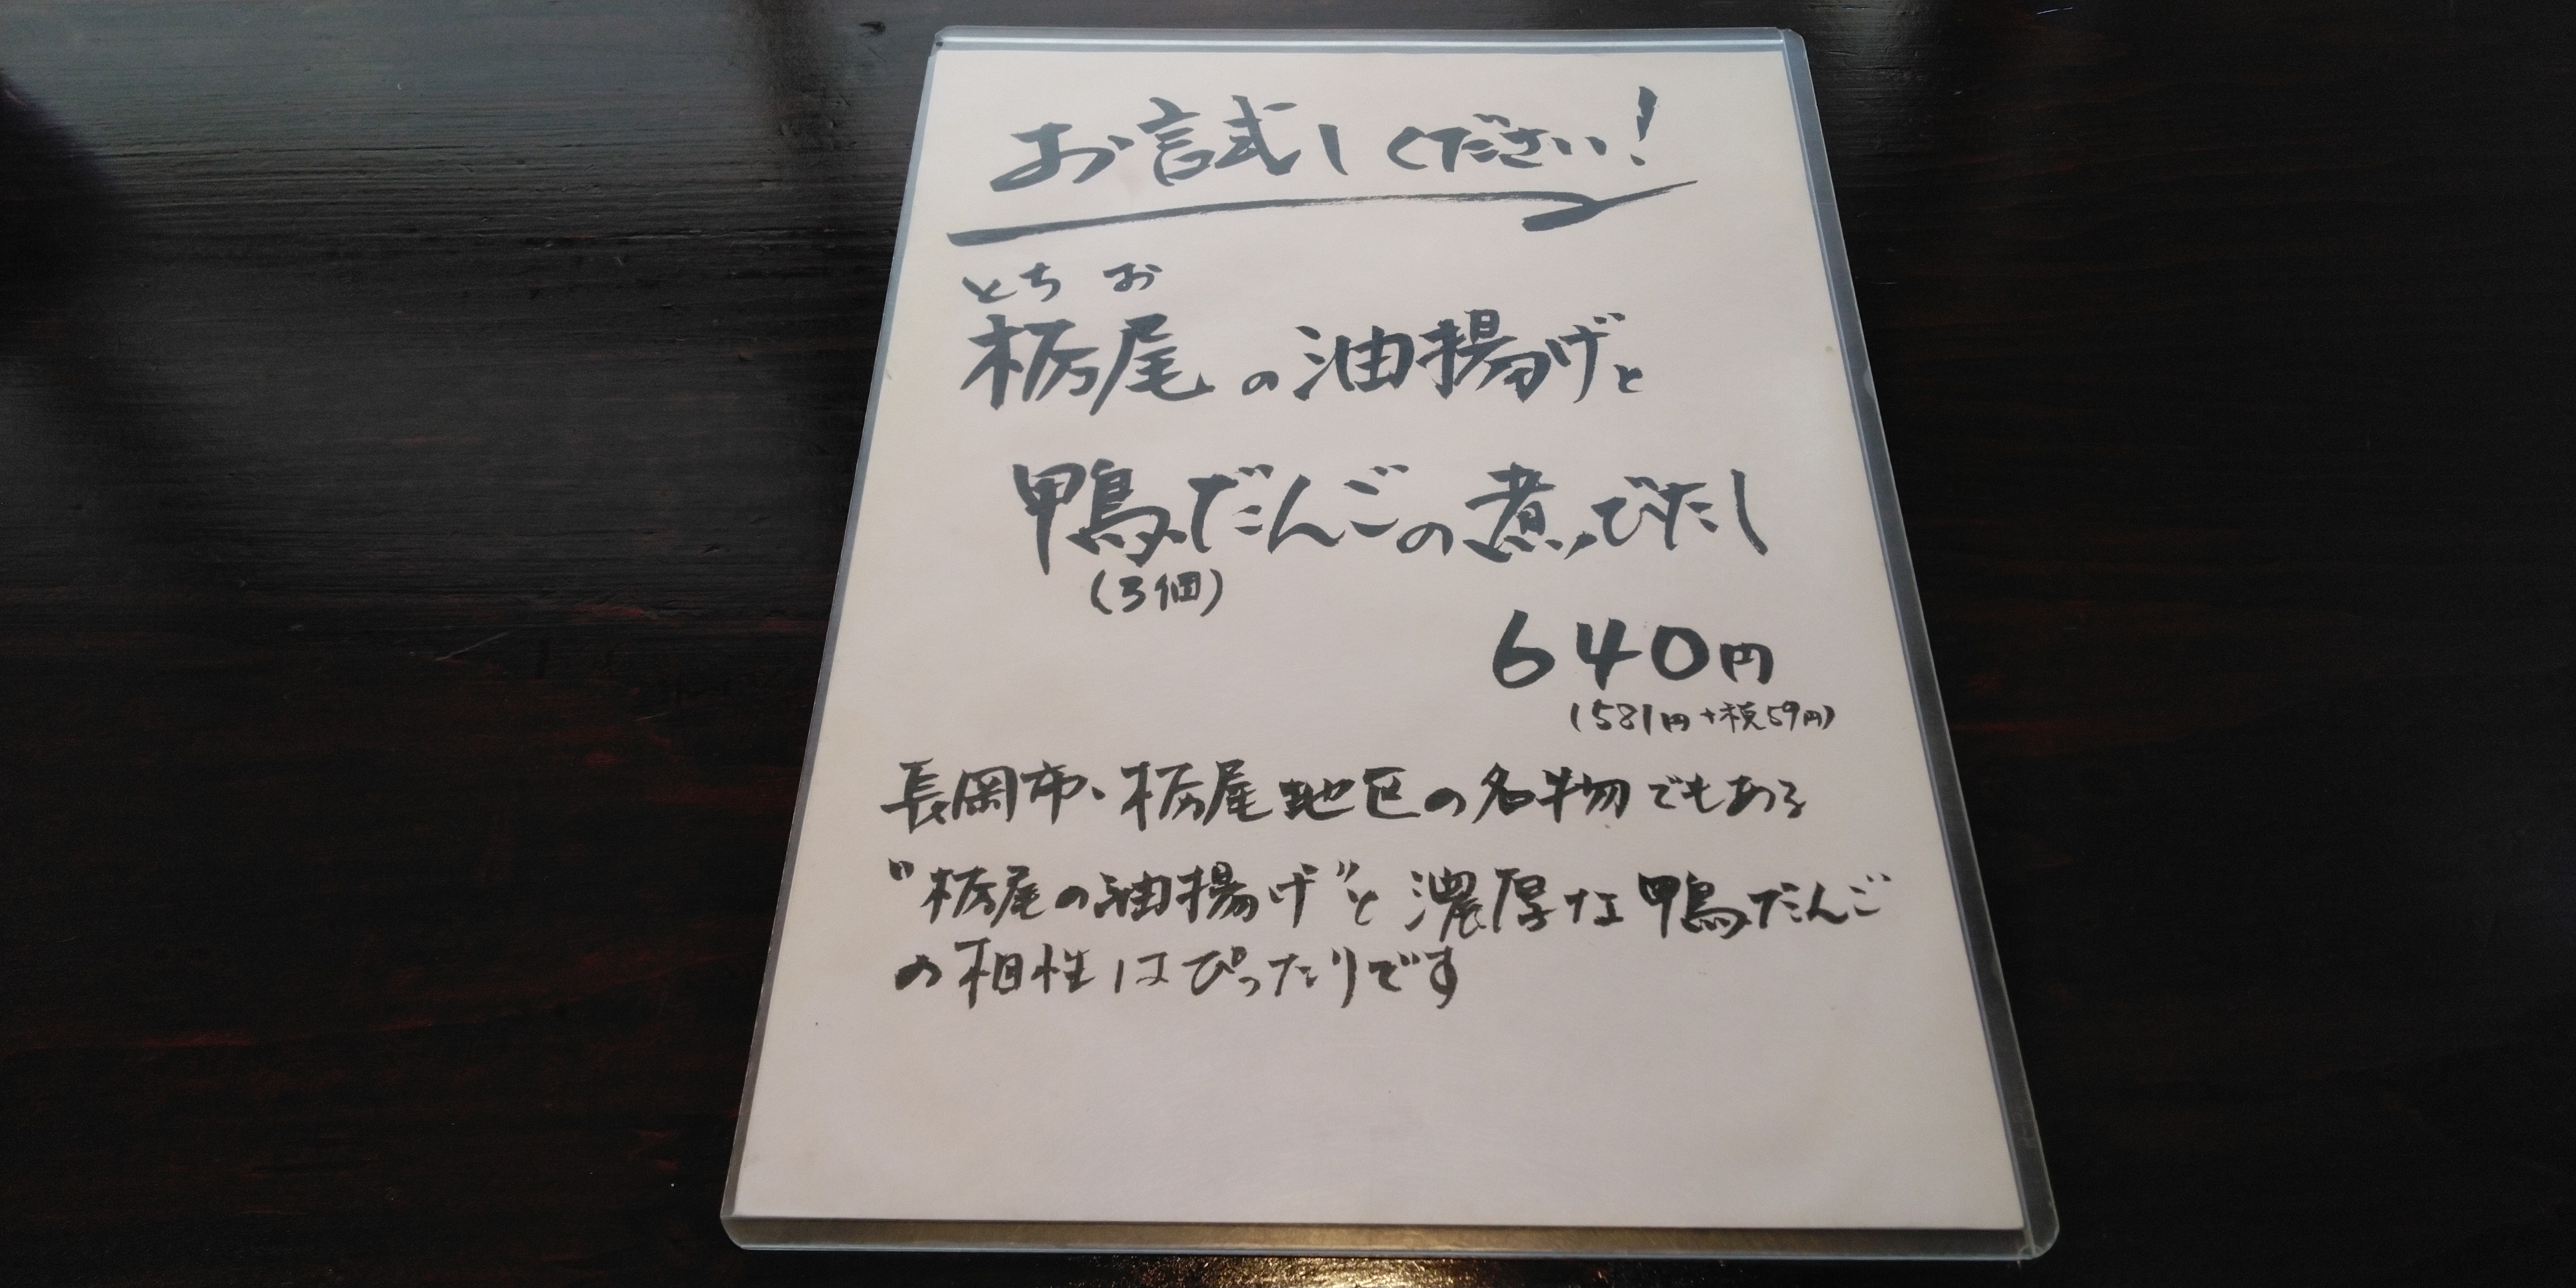 お試しください!
とちお
栃尾の油揚げと
鴨だんごの煮びたし
(3個)
640円
(581円+税59円)
長岡市、栃尾地区の名物でもある
"栃尾の油揚げ"と濃厚な鴨だんご
の相性はぴったりです